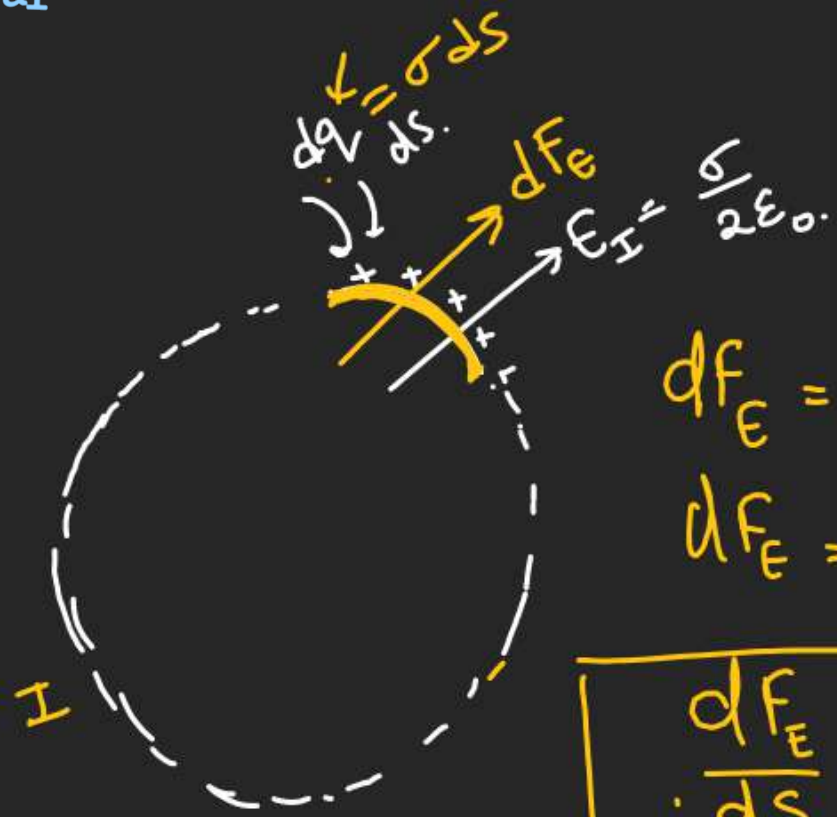 = σ ds
dq ds.
dF_E
E_I = σ/2ε₀.
+ + + +
dF_E =
dF_E =
I
dF_E
ds